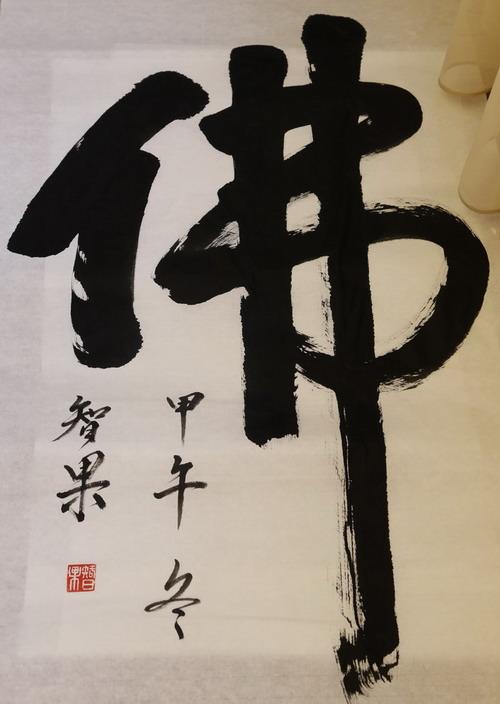 佛
甲午冬
智果
智果